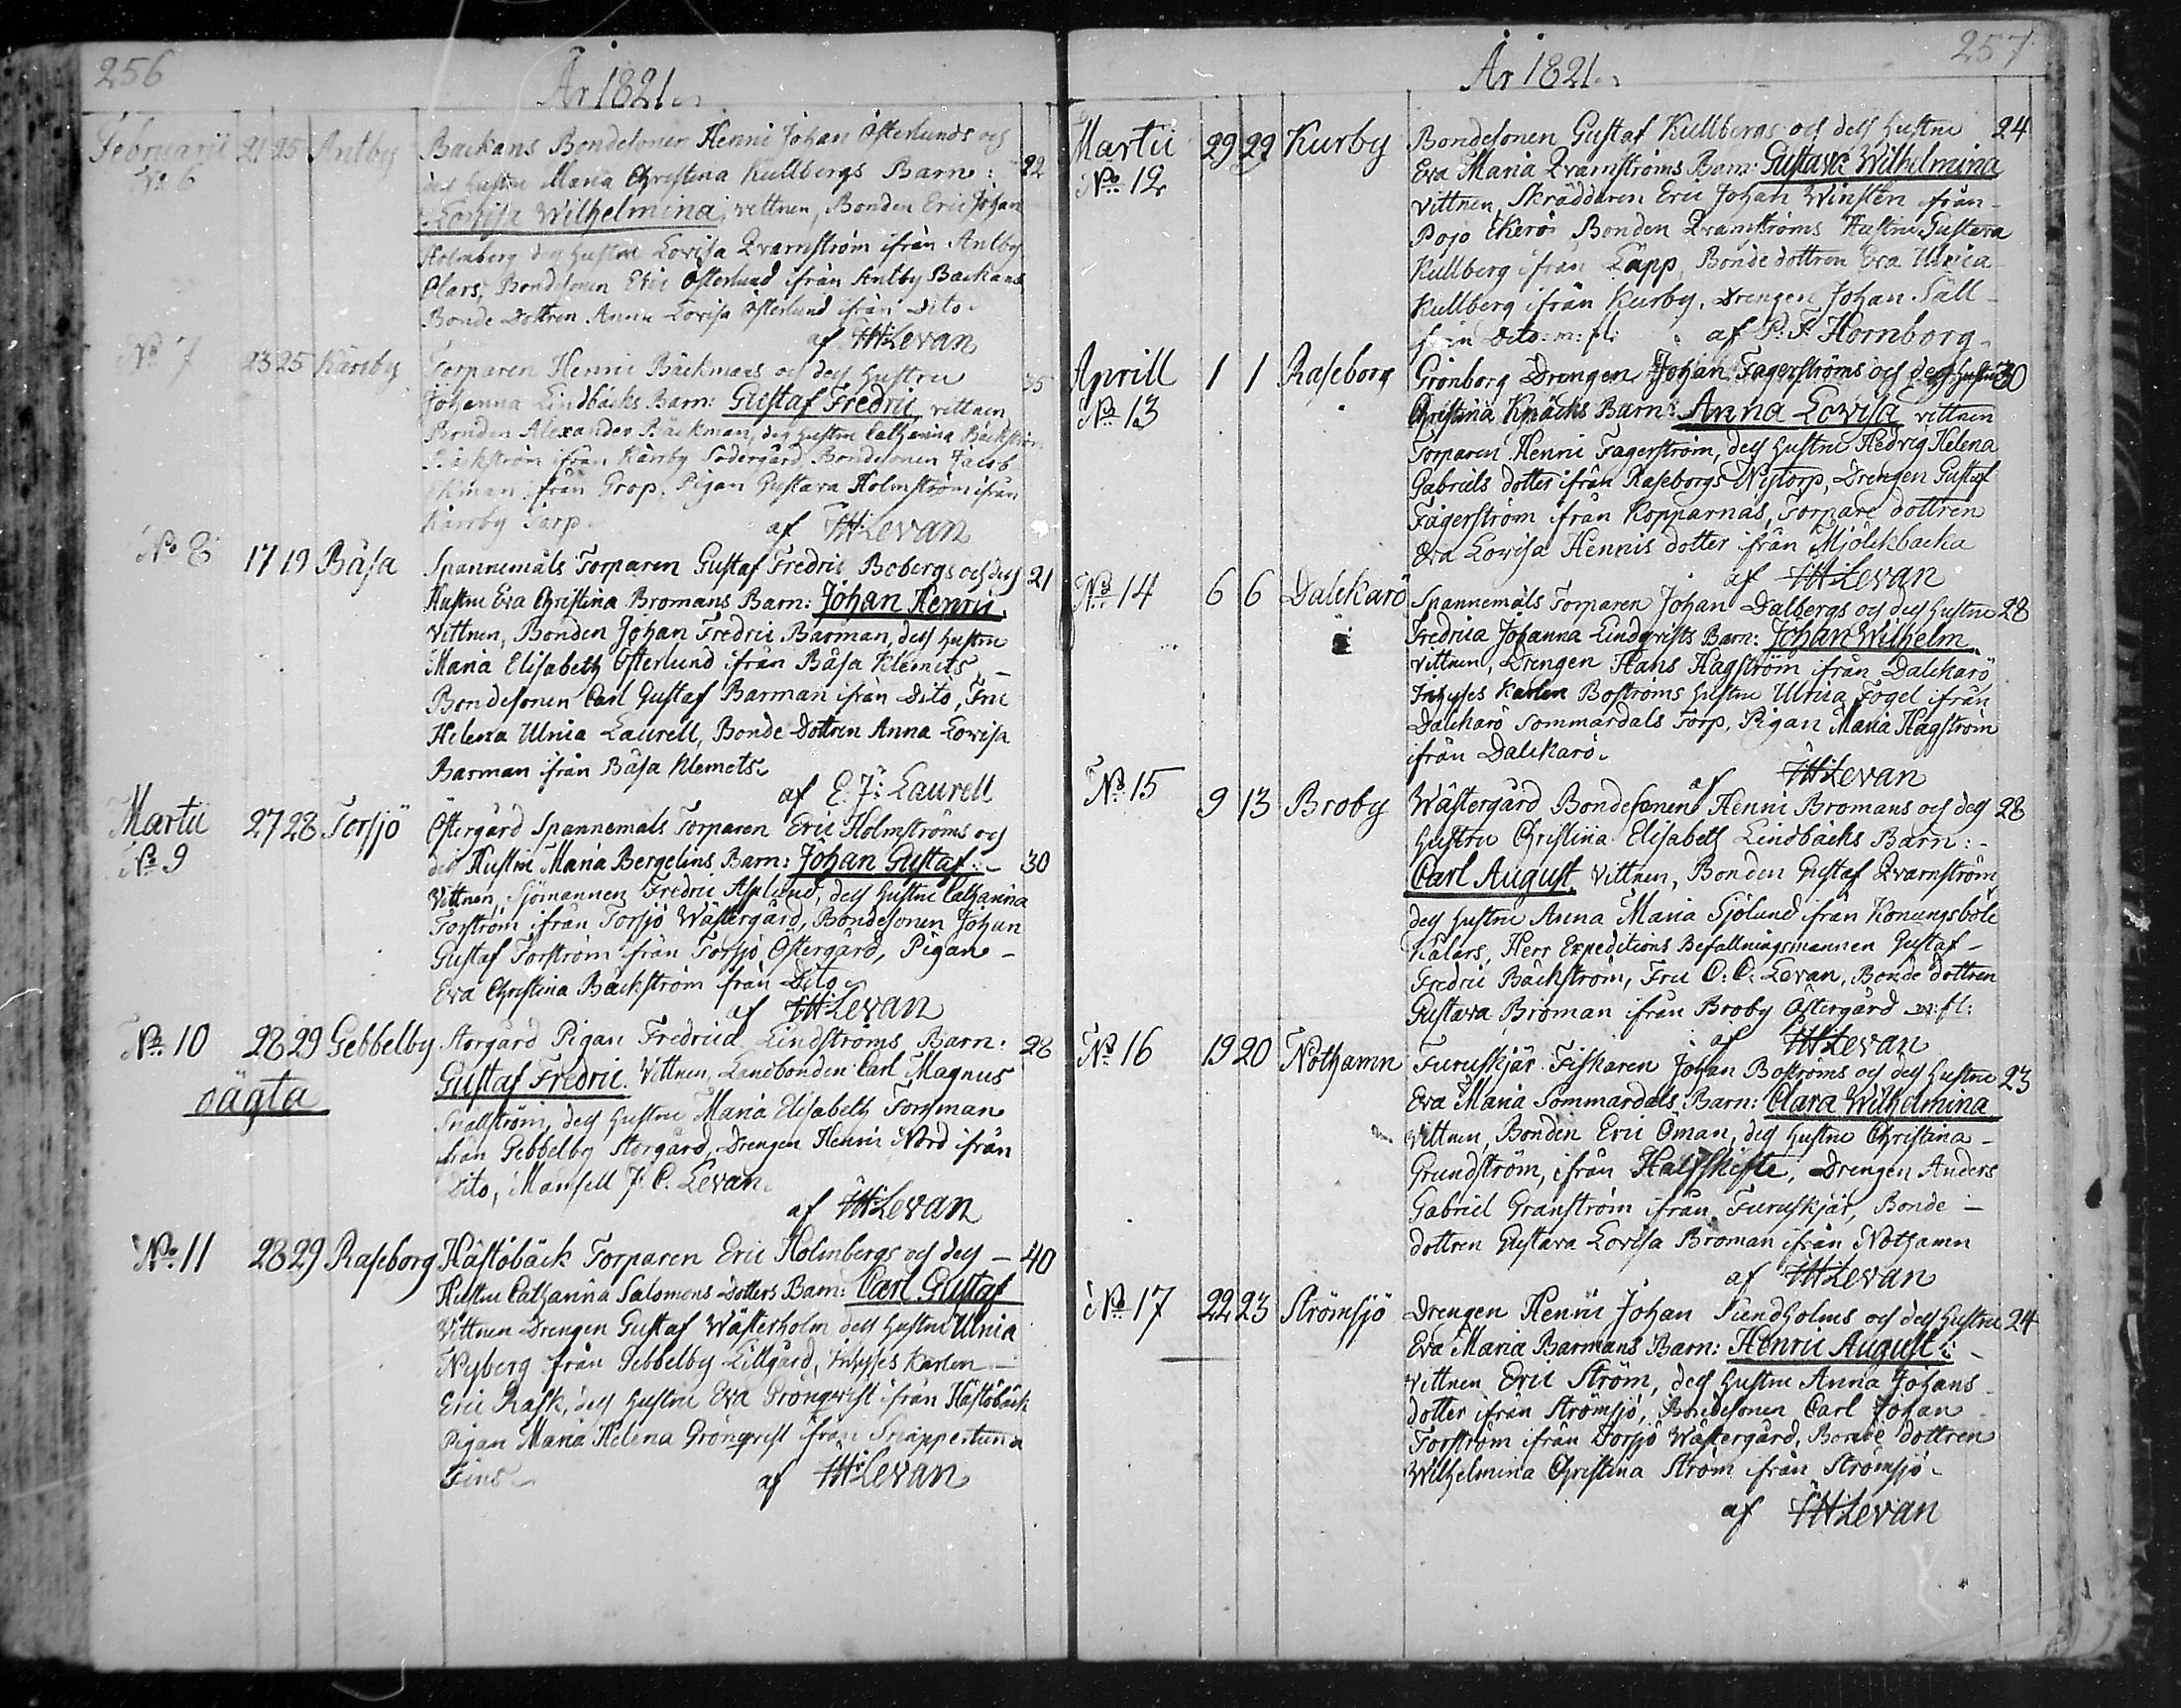 256
År 1821.
Februarii 21 25 Antby Backans Bondesonen Henric Johan Österlunds och
No 6 dess hustru Maria Christina Kullbergs Barn: 22
Lovisa Wilhelmina, vittnen, Bonden Eric Johan
Holmberg dess hustru Lovisa Qvarnström ifrån Antby
Olars, Bondesonen Eric Österlund ifrån Antby Backans
Bonde Dottren Anna Lovisa Österlund ifrån Dito.
af Levan
No 7 23 25 Kärrby Torparen Henric Bäckmans och dess hustru
Johanna Lindbäcks Barn: Gustaf Fredric vittnen, 35
Bonden Alexander Bäckman, dess hustru Catharina Bäckström
Bäckström ifrån Kärrby Södergård, Bondesonen Jacob
ifrån Grop, Pigan Gustava Holmström ifrån
Kärrby Torp.
af Levan
No 8 17 19 Båsa Spannemåls Torparen Gustaf Fredric Bobergs och dess 21
Hustru Eva Christina Bromans Barn: Johan Henric.
Vittnen, Bonden Johan Fredric Barman, dess hustru
Maria Elisabeth Österlund ifrån Båsa Klemets –
Bondesonen Carl Gustaf Barman ifrån Dito, Fru
Helena Ulrica Laurell, Bonde Dottren Anna Lovisa
Barman ifrån Båsa Klemets.
af E. J. Laurell
Martii 27 28 Torsjö Östergård Spannemåls Torparen Eric Holmströms och
No 9 des Hustru Maria Bergelins Barn: Johan Gustaf: – 30
Vittnen, Sjömannen Fredric Asplund, dess hustru Catharina
Torström ifrån Torsjö Wästergård, Bondesonen Johan
Gustaf Torström från Torsjö Östergård, Pigan –
Eva Christina Bäckström från Dito.
af Levan
No 10 28 29 Gebbelby Storgård Pigan Fredrica Lindströms Barn: 28
oägta Gustaf Fredric. Vittnen, Landbonden Carl Magnus
Snällström, dess hustru Maria Elisabeth Forsman
från Gebbelby Storgård, Drengen Henric Nord ifrån
Dito, Mamsell J. C. Levan.
af Levan
No 11 28 29 Raseborg Hästöbäck Torparen Eric Holmbergs och dess – 40
Hustru Catharina Salomons Dotters Barn: Carl Gustaf
Vittnen Drengen Gustaf Wästerholm dess hustru Ulrica
Nyberg från Gebbelby Lillgård, Inhyses Karlen –
Eric Rask, dess hustru Eva Grönqvist ifrån Hästöbäck
Pigan Maria Helena Grönqvist ifrån Snappertuna
af Levan
257
År 1821.
Martii 29 29 Kurby Bondesonen Gustaf Kullbergs och dess hustru 24
No 12 Eva Maria Qvarnströms Barn: Gustava Wilhelmina
Vittnen, Skräddaren Eric Johan Winstén ifrån
Pojo Ekerö Bonden Qvarnströms Hustru Gustava
Kullberg ifrån Lapp, Bonde dottren Eva Ulrica
Kullberg ifrån Kurby, Drengen Johan Säll –
från Dito: m: fl: af P. F. Hornborg.
Aprill 1 1 Raseborg Grönborg Drengen Johan Fagerströms och dess hustru 30
No 13 Christina Knäcks Barn: Anna Lovisa vittnen
Torparen Henric Fagerström, dess hustru Hedvig Helena
Gabriels dotter ifrån Raseborgs Nytorp, Drengen Gustaf
Fagerström ifrån Kopparnäs, Torpare dottren
Eva Lovisa Henrics dotter ifrån Mjölckbacka
af Levan
No 14 6 6 Dalckarö Spannemåls Torparen Johan Dalbergs och dess hustru 28
Fredrica Johanna Lindqvists Barn: Johan Wilhelm.
Vittnen, Drengen Hans Hagström ifrån Dalckarö
Inhyses Karlen Boströms hustru Ulrica Fogel ifrån
Dalckarö Sommardals Torp, Pigan Maria Hagström
ifrån Dalckarö.
af Levan
No 15 9 13 Broby Wästergård Bondesonen Henric Bromans och dess 28
hustru Christina Elisabeth Lindbäcks Barn: –
Carl August. Vittnen, Bonden Gustaf Qvarnström
dess hustru Anna Maria Sjölund ifrån Konungsböle
Kålars, Herr Expeditions Befallningsmannen Gustaf –
Fredric Bäckström, Fru C: C: Levan, Bonde dottren
Gustava Broman ifrån Broby Östergård m: fl:
af Levan
No 16 19 20 Nothamn Furuskjär Fiskaren Johan Boströms och dess hustru 23
Eva Maria Sommardals Barn: Clara Wilhelmina
Vittnen, Bonden Eric Öman, dess hustru Christina –
Grundström, ifrån Halfskifte, Drengen Anders
Gabriel Granström ifrån Furuskjär, Bonde –
dottren Gustava Lovisa Broman ifrån Nothamn
af Levan
No 17 22 23 Strömsjö Drengen Henric Johan Sundholms och dess hustru 24
Eva Maria Barmans Barn: Henric August: –
Vittnen Eric Ström, dess hustru Anna Johans
dotter ifrån Strömsjö, Bondesonen Carl Johan
Torström ifrån Torsjö Wästergård, Bonde dottren
Wilhelmina Christina Ström ifrån Strömsjö.
af Levan